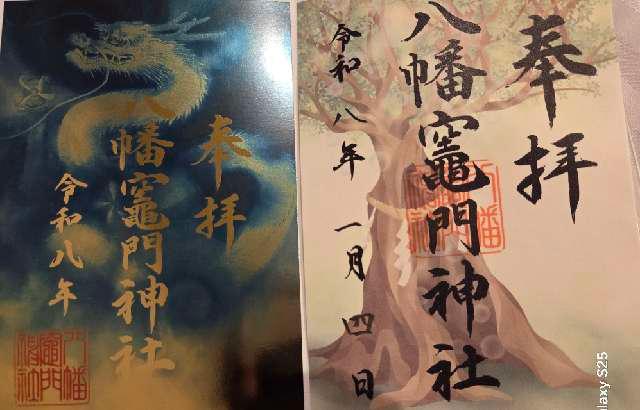 奉拝
八幡竈門神社
令和八年
八幡
竈門
神社
奉拝
八幡竈門神社
令和八年 一月 四日
laxy S25